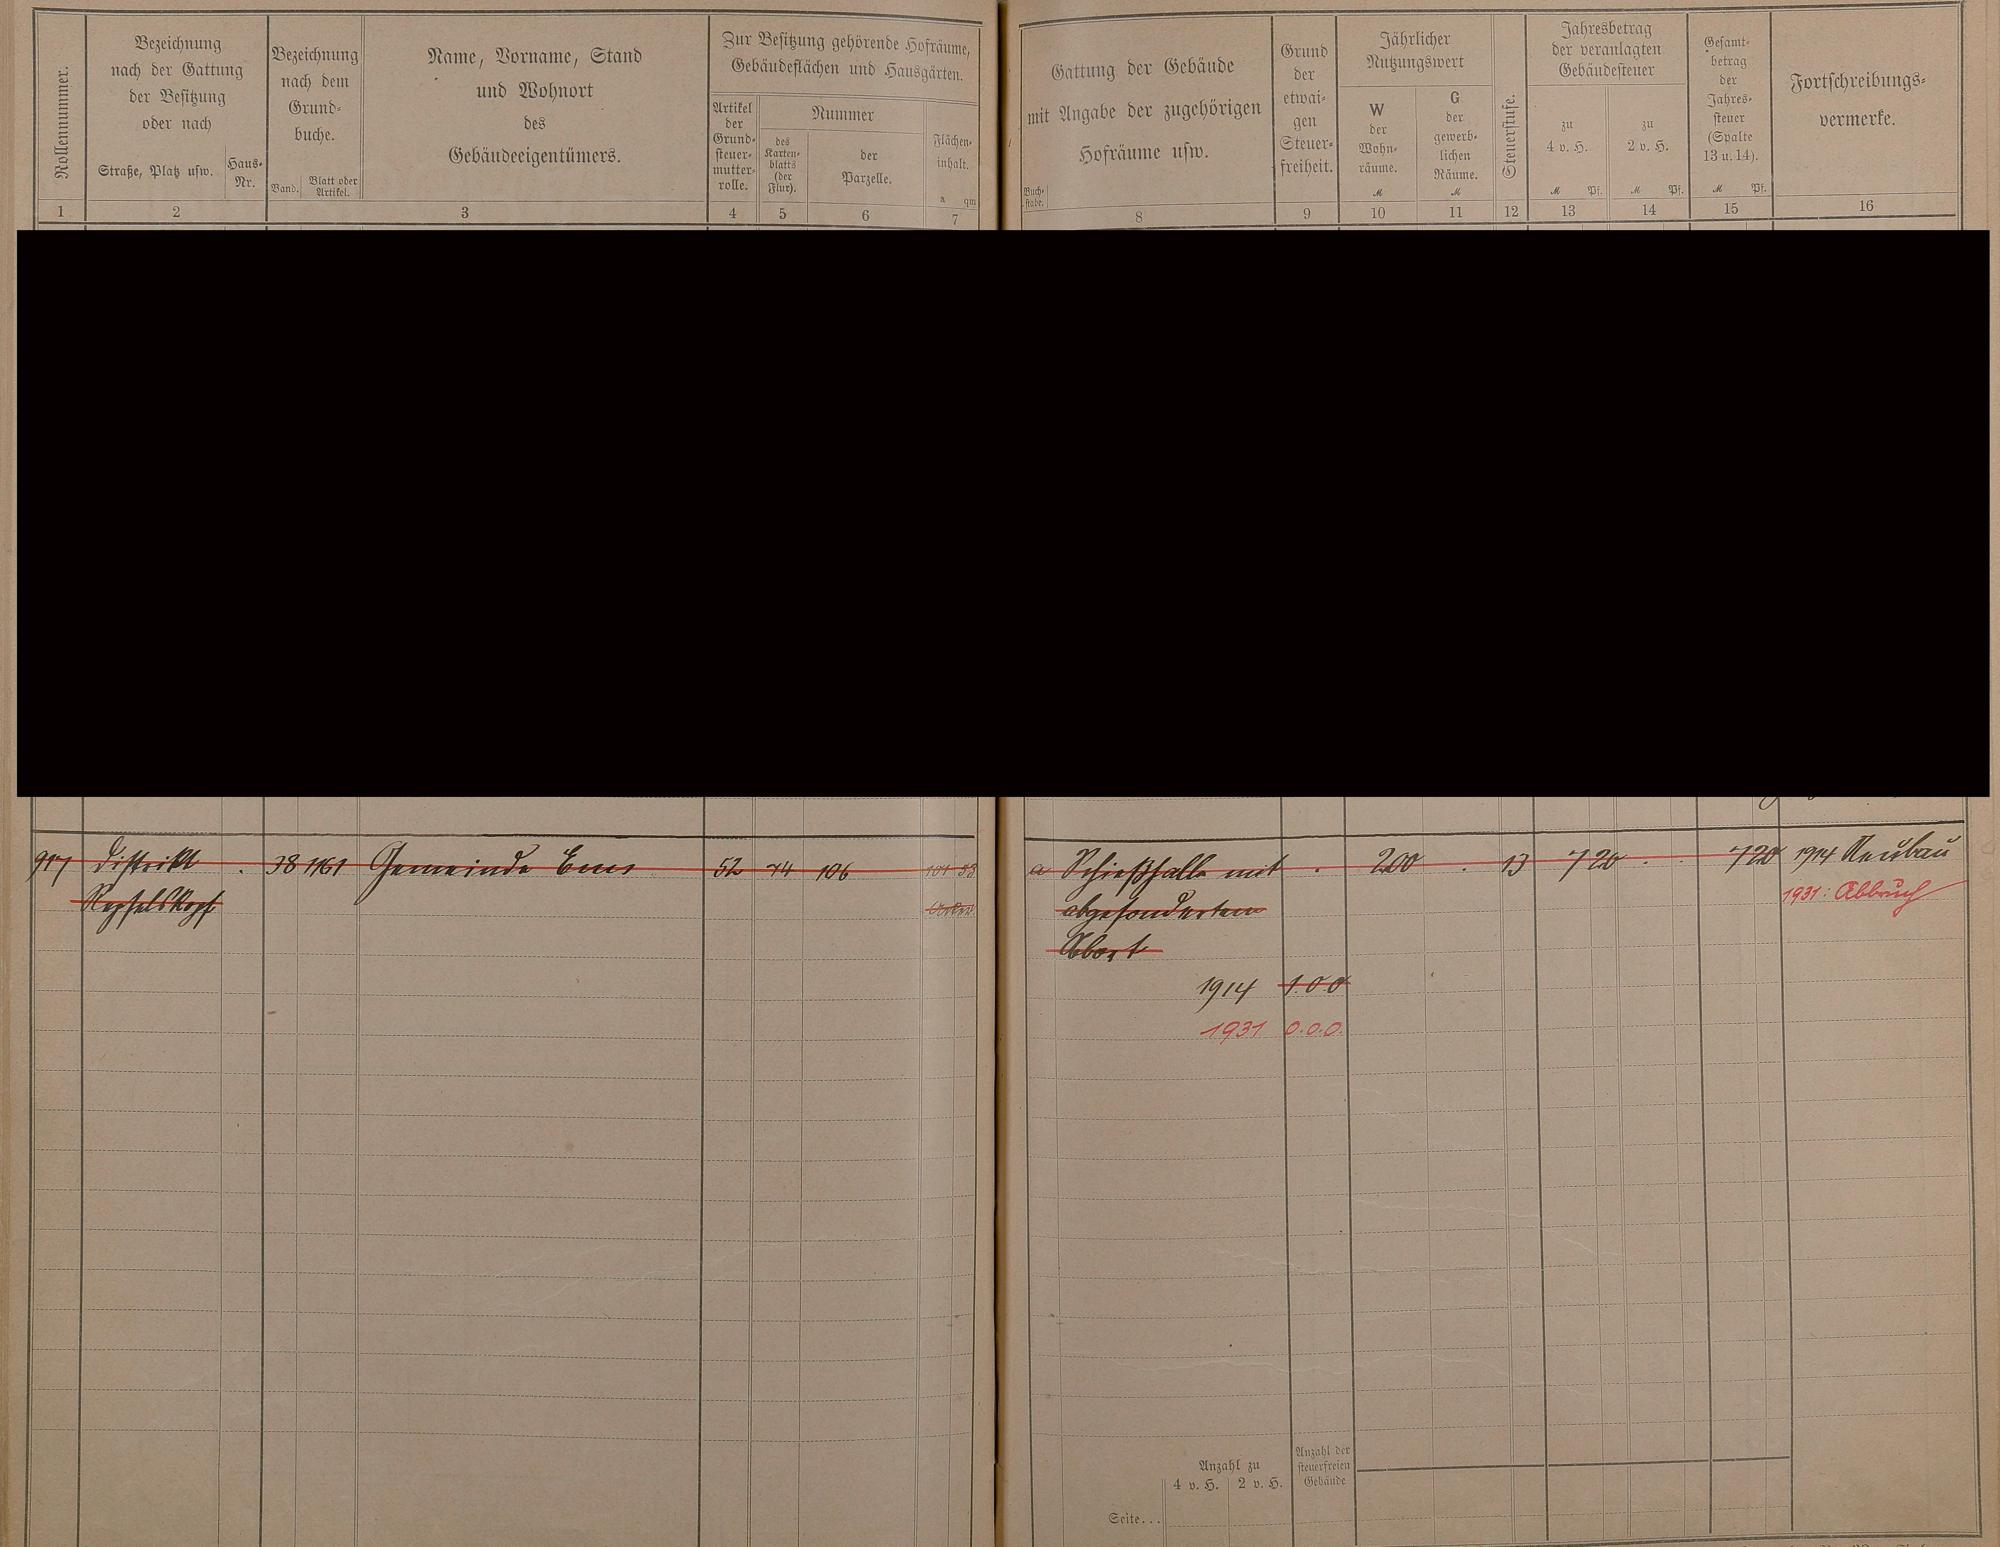 Rollennummer.
Bezeichnung
nach der Gattung
der Besitzung
oder nach
Straße, Platz usw.
Haus-
Nr.
Bezeichnung
nach dem
Grund-
buche.
Band.
Blatt oder
Artikel.
Name, Vorname, Stand
und Wohnort
des
Gebäudeeigentümers.
Zur Besitzung gehörende Hofräume,
Gebäudeflächen und Hausgärten.
Artikel
der
Grund-
steuer-
mutter-
rolle.
Nummer
des
Karten-
blatts
(der
Flur).
der
Parzelle.
Flächen-
inhalt.
a qm
1 2 3 4 5 6 7
Buch-
stabe.
Gattung der Gebäude
mit Angabe der zugehörigen
Hofräume usw.
Grund
der
etwai-
gen
Steuer-
freiheit.
Jährlicher
Nutzungswert
W
der
Wohn-
räume.
M
G
der
gewerb-
lichen
Räume.
M
Steuerstufe.
Jahresbetrag
der veranlagten
Gebäudesteuer
zu
4 v. H.
M Pf.
zu
2 v. H.
M Pf.
Gesamt-
betrag
der
Jahres-
steuer
(Spalte
13 u. 14).
M Pf.
Fortschreibungs-
vermerke.
8 9 10 11 12 13 14 15 16
917 Distrikt . 38 1161 Gemeinde Ems 52 44 106
Kopf
a Schießhalle mit . 200 . 13 7 20 . . 7 20 1914 Neubau
abgesondertem 1931: Abbruch
Abort
1914 1.0.0
1931 0.0.0.
Anzahl zu
4 v. H. 2 v. H.
Anzahl der
steuerfreien
Gebäude
Seite...